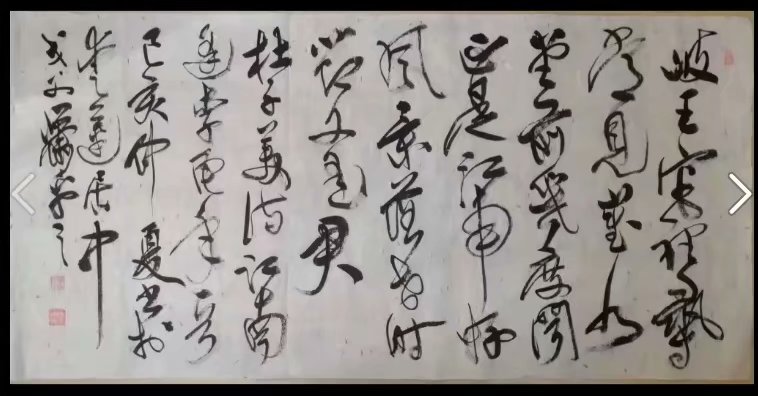 岐王宅裡尋
常見崔九
堂前幾度聞
正是江南好
風景落花時
節又逢君
杜子美詩江南
逢李龟年
己亥仲夏書於
居中